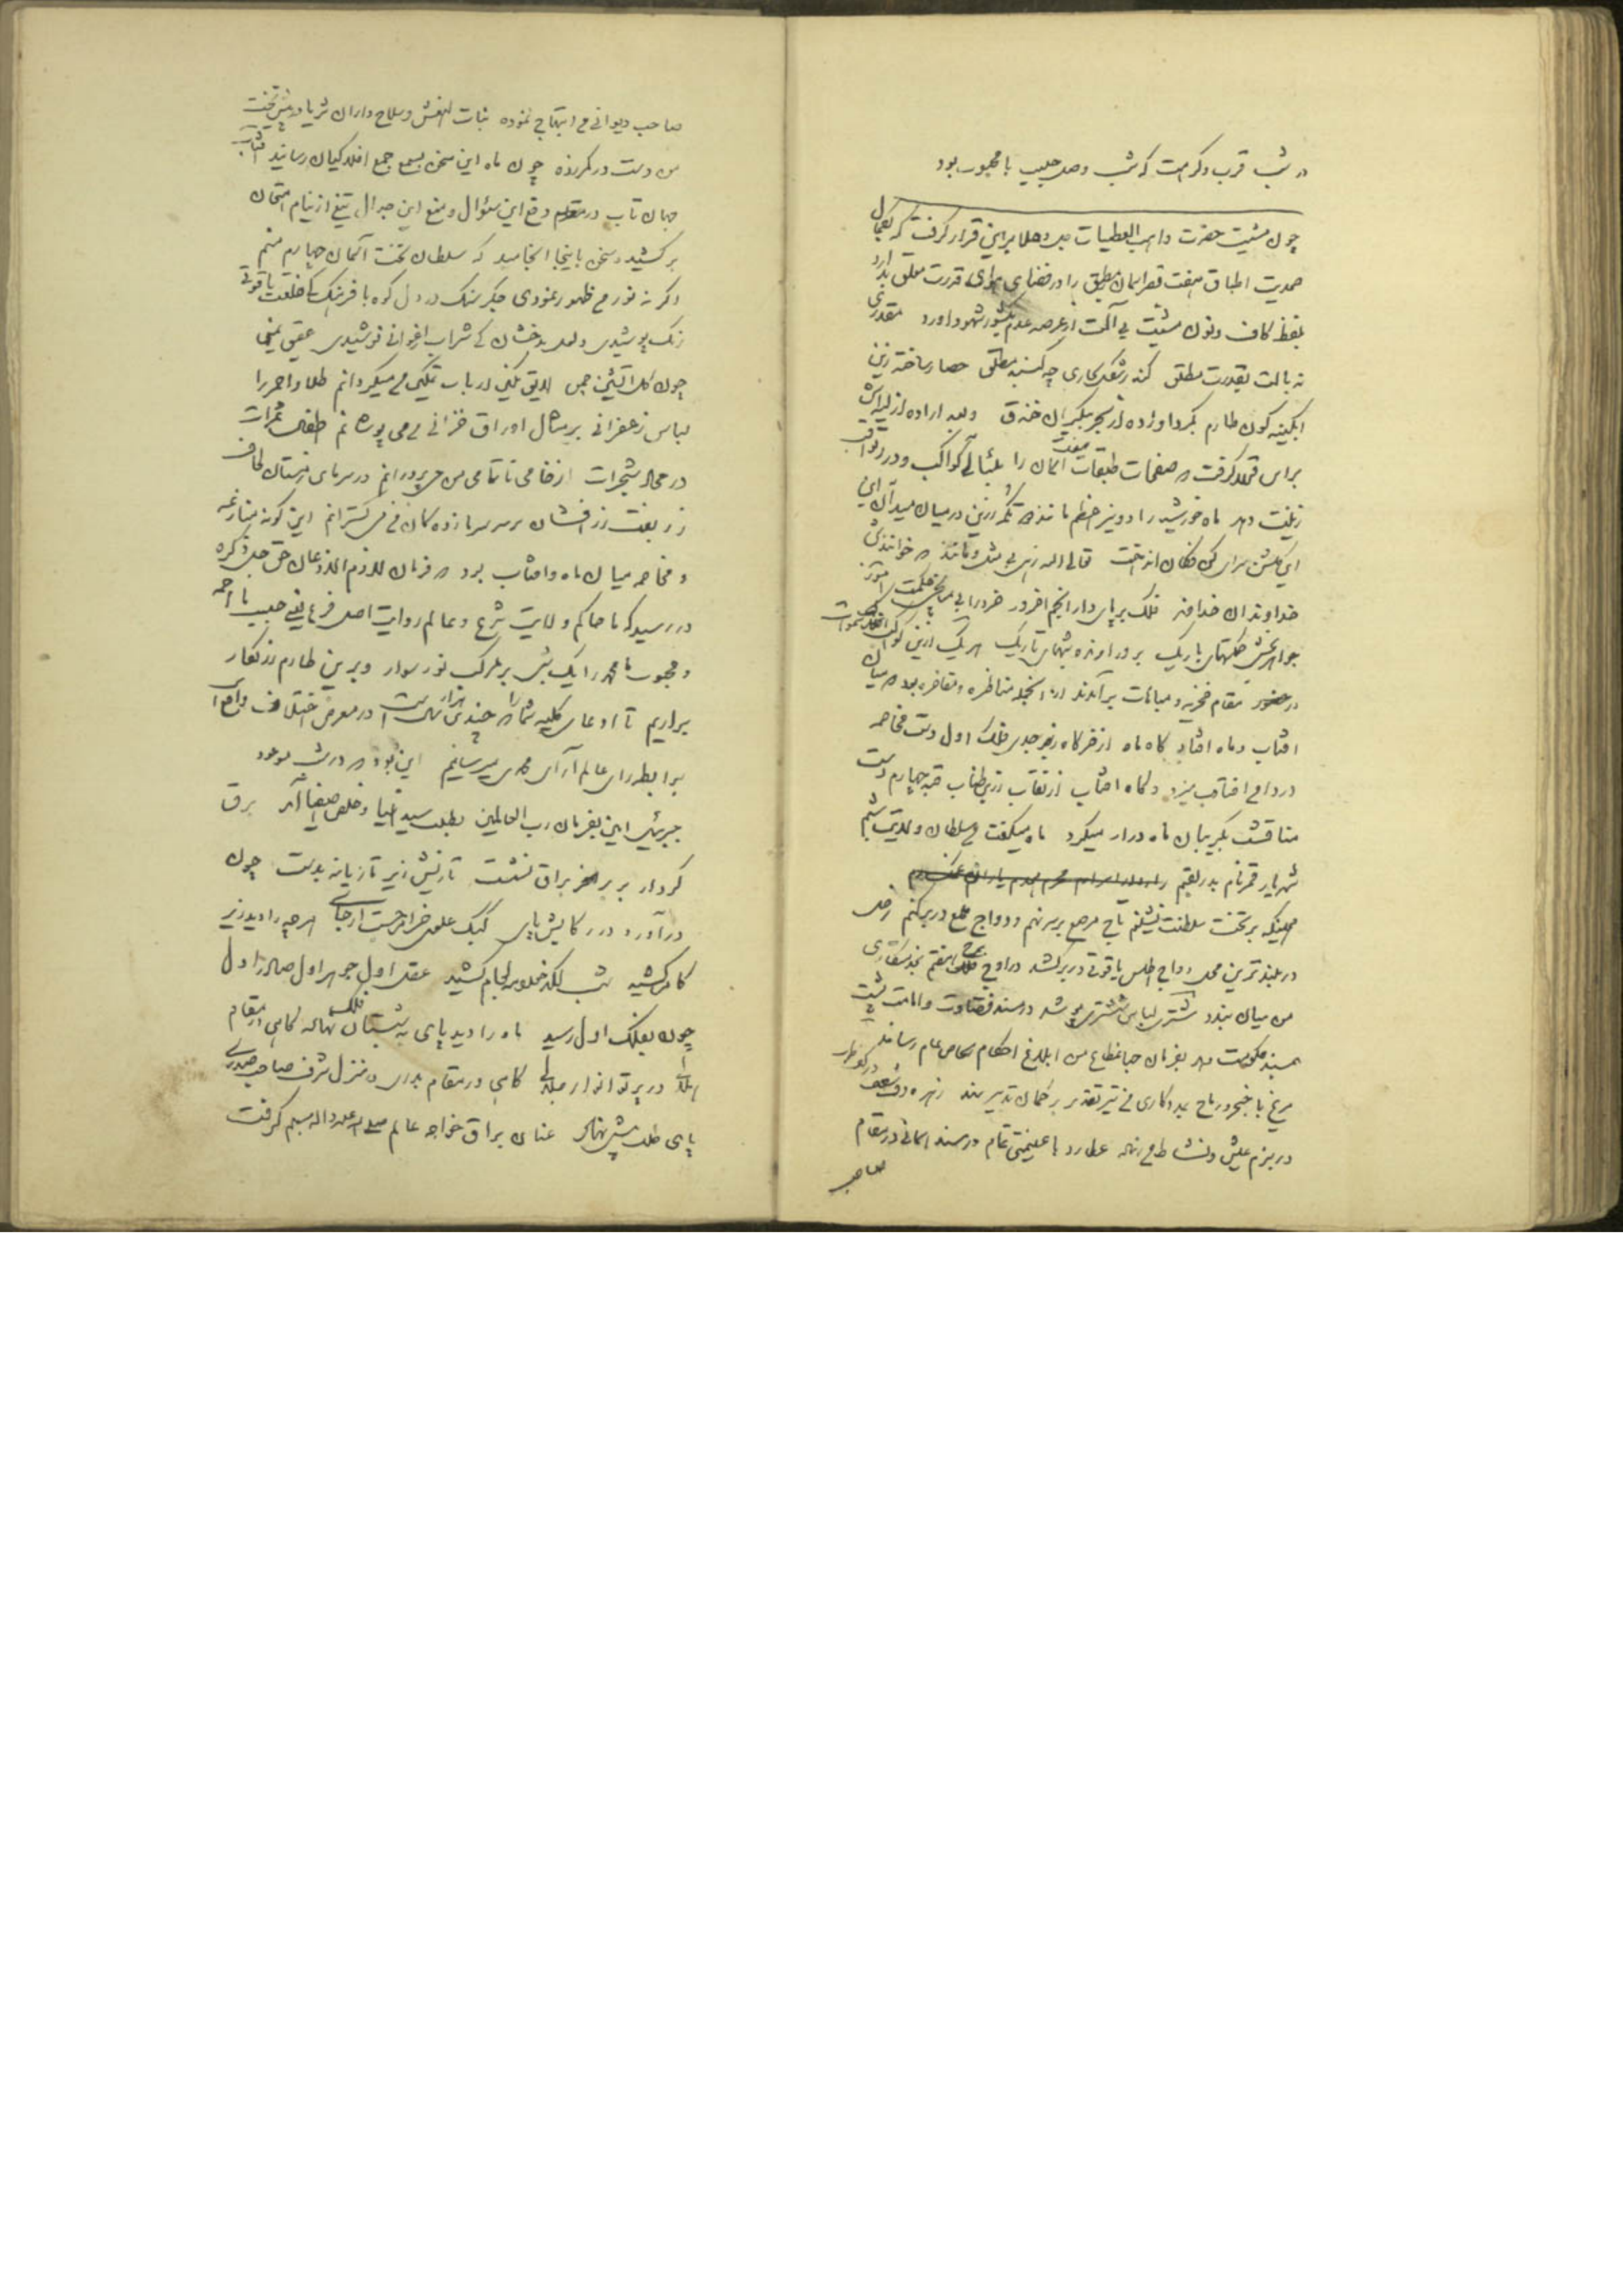 در شب قرب و کرامت که شب وصل حبیب با محبوب بود
چون مشیت حضرت واهب العطیات جل و علا بر این قرار گرفت که بکمال
صمدیت اطباق هفت قصر اسمان مطبق را در فضای هوای قدرت معلق بدارد
بلفظ کاف و نون مشیت بی آلت از عرصه عدم بکشور شهود اورد مقدری
نه بالت بقدرت مطلق کند شکل کاری چه کنبد مطلق حصار ساخته زین
ابکینه کون طارم بکرد او زده از بحر بیکران خندق و بعد اراده
براین قرار گرفت که صفحات طبقات اسمان را بلئالی کواکب و درر ثواقب
زینت دهد ماه خورشید را دو نیر اعظم مانند تکمه زرین در میان میدان این
این کلشن سرای کن فکان انداخت تعالی الله زهی بی مثل و مانند که خوانندش
خداوندان خداوند فلک بر پای دار انجم افروز خرد را بی میانجی حکمت اموز
جواهر بخش حکمتهای باریک بروز اورنده شبهای تاریک هر یک ازین کواکب
در مقام فخریه و مباهات برآمدند از انجمله مناظره و مفاخره بود که میان
افتاب و ماه افتاد کاه ماه از خرکاه زبرجدی فلک اول دست مخاصمه
در دامن افتاب میزد و کاه افتاب از نقاب زرین طناب قبه چهارم دست
مناقشت بکریبان ماه دراز میکرد ماه میکفت من سلطان ولایت شبم
شهریار قمر نام بدر لقبم
همینکه بر تخت سلطنت نشینم تاج مرصع بر سر نهم و دواج ملمع در بر کنم زحل
در بلندترین محل دواج اطلس یاقوتی در بر کشد در اوج هفتم بخدمتکاری
من میان بندد مشتری لباس ششتری پوشد در مسند قضاوت و امامت نشیند
بمسند حکومت دهد بفرمان من ابلاغ احکام بخاص و عام رساند
مریخ با خنجر و رماح بمددکاری من تیر تقدیر بر کمان تدبیر نهد زهره دف بر کف
در بزم عیش و نشاط من نهد عطارد با علیمتی تمام در مسند اسمانی در مقام
صاحب
صاحب دیوانی من ابتهاج نموده بنات النعش و سلاح داران ثریا در پیش تخت
من دست در کمر زده چون ماه این سخن بسمع جمع افلاکیان رسانید افتاب
جهان تاب در مقام دفع این سئوال و منع این جدال تیغ از نیام امتحان
برکشید و سخن باینجا انجامید که سلطان تخت آسمان چهارم منم
اکر نه نور من ظهور نمودی جکر سنک در دل کوه با فرهنک کی خلعت یاقوتی
رنک پوشیدی و لعل بدخشان کی شراب ارغوانی نوشیدی عقیق یمنی
چون کل آتشین چمن لایق نکین ارباب تمکین من میکردانم طلاء احمر را
لباس زعفرانی بر مثال اوراق خزانی من می پوشانم طفلان ثمرات
در مجاله شجرات از خامی تا تمامی من می پرورانم در سرمای زمستان لحاف
زربفت زرافشان بر سر سرمازده کان من می کسترانم این کونه منازعه
و مخاصمه میان ماه و افتاب بود که فرمان لازم الاذعان حق جل ذکره
در رسید که ما حاکم ولایت شرع و عالم روایت اصل و فرع یعنی حبیب ما احمد
و محبوب ما محمد را یک شبی بر مرکب نور سوار و برین طارم زرنکار
برآریم تا ادعای کلیه شما را که چندین هزار سال است در معرض اختلاف واقع است
برابطه رای عالم آرای محمدی میرسانیم این بود که در شب موعود
جبرئیل امین بفرمان رب العالمین بطلب سید انبیا و خلص اصفیا آمد برق
کردار بر براق نشست تازیش زیر تازیانه بدست چون
درآورد در رکابش پای کبک علوی خرام جست از جای هرچه را دید زیر
کام کشید شب لکد خلوه لجام کشید عقل اول جوهر اول صادر اول
چون بفلک اول رسید ماه را دید پای بشبستان فلک نهاده کاهی در مقام
هلالی در پرتو انوار جلالی کاهی در مقام بدری و منزل شرف صاحب صدری
پای طلب پیش نهاد عنان براق خواجه عالم صلی الله علیه و اله و سلم کرفت